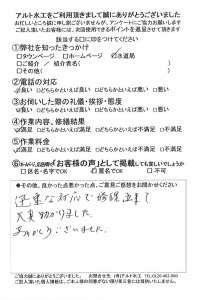 アルト水工をご利用頂きまして誠にありがとうございました
お忙しいところ誠に申し訳ございませんが、アンケートにご協力お願いします
ご記入頂いたお客様には、次回使用できるポイントを進呈させて頂きます
該当する□に印をつけてください
①弊社を知ったきっかけ
□タウンページ □ホームページ ☑水道局
□ご紹介(ご紹介者名 )
□その他( )
②電話の対応
☑良い □どちらかといえば良い □どちらかといえば悪い □悪い
③お伺いした際の礼儀・挨拶・態度
☑良い □どちらかといえば良い □どちらかといえば悪い □悪い
④作業内容、修繕結果
☑満足 □どちらかといえば満足 □どちらかといえば不満足 □不満足
⑤作業料金
☑満足 □どちらかといえば満足 □どちらかといえば不満足 □不満足
「お客様の声」として掲載しても宜しいでしょうか
□匿名でOK □不可
◆その他、良かった点悪かった点、ご意見ご感想をお聞かせください
迅速な対応で修繕出来て
大変助かりました。
ありがとうございました。
ご協力誠にありがとうございました。 お問合せ先 (有)アルト水工